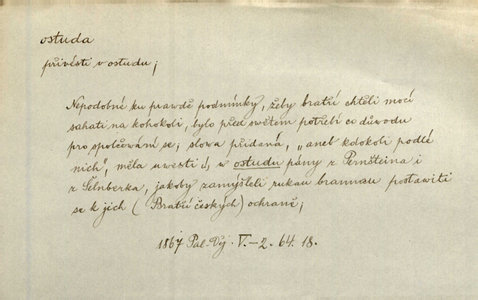 ostuda
přivésti v ostudu;
Nepodobné ku pravdě podmínky, žeby bratří chtěli mocí
sahati na kohokoli, bylo před světem potřebí co důvodu
pro spolčování se; slova přidaná, „aneb kdokoli podlé
nich", měla uvésti i, v ostudu pány z Pernšteina i
z Šelnberka, jakoby zamýšleli rukau brannau postaviti
se k jich (Bratří českých) ochraně;
1867 Pal. Děj. V.–2. 64. 18.